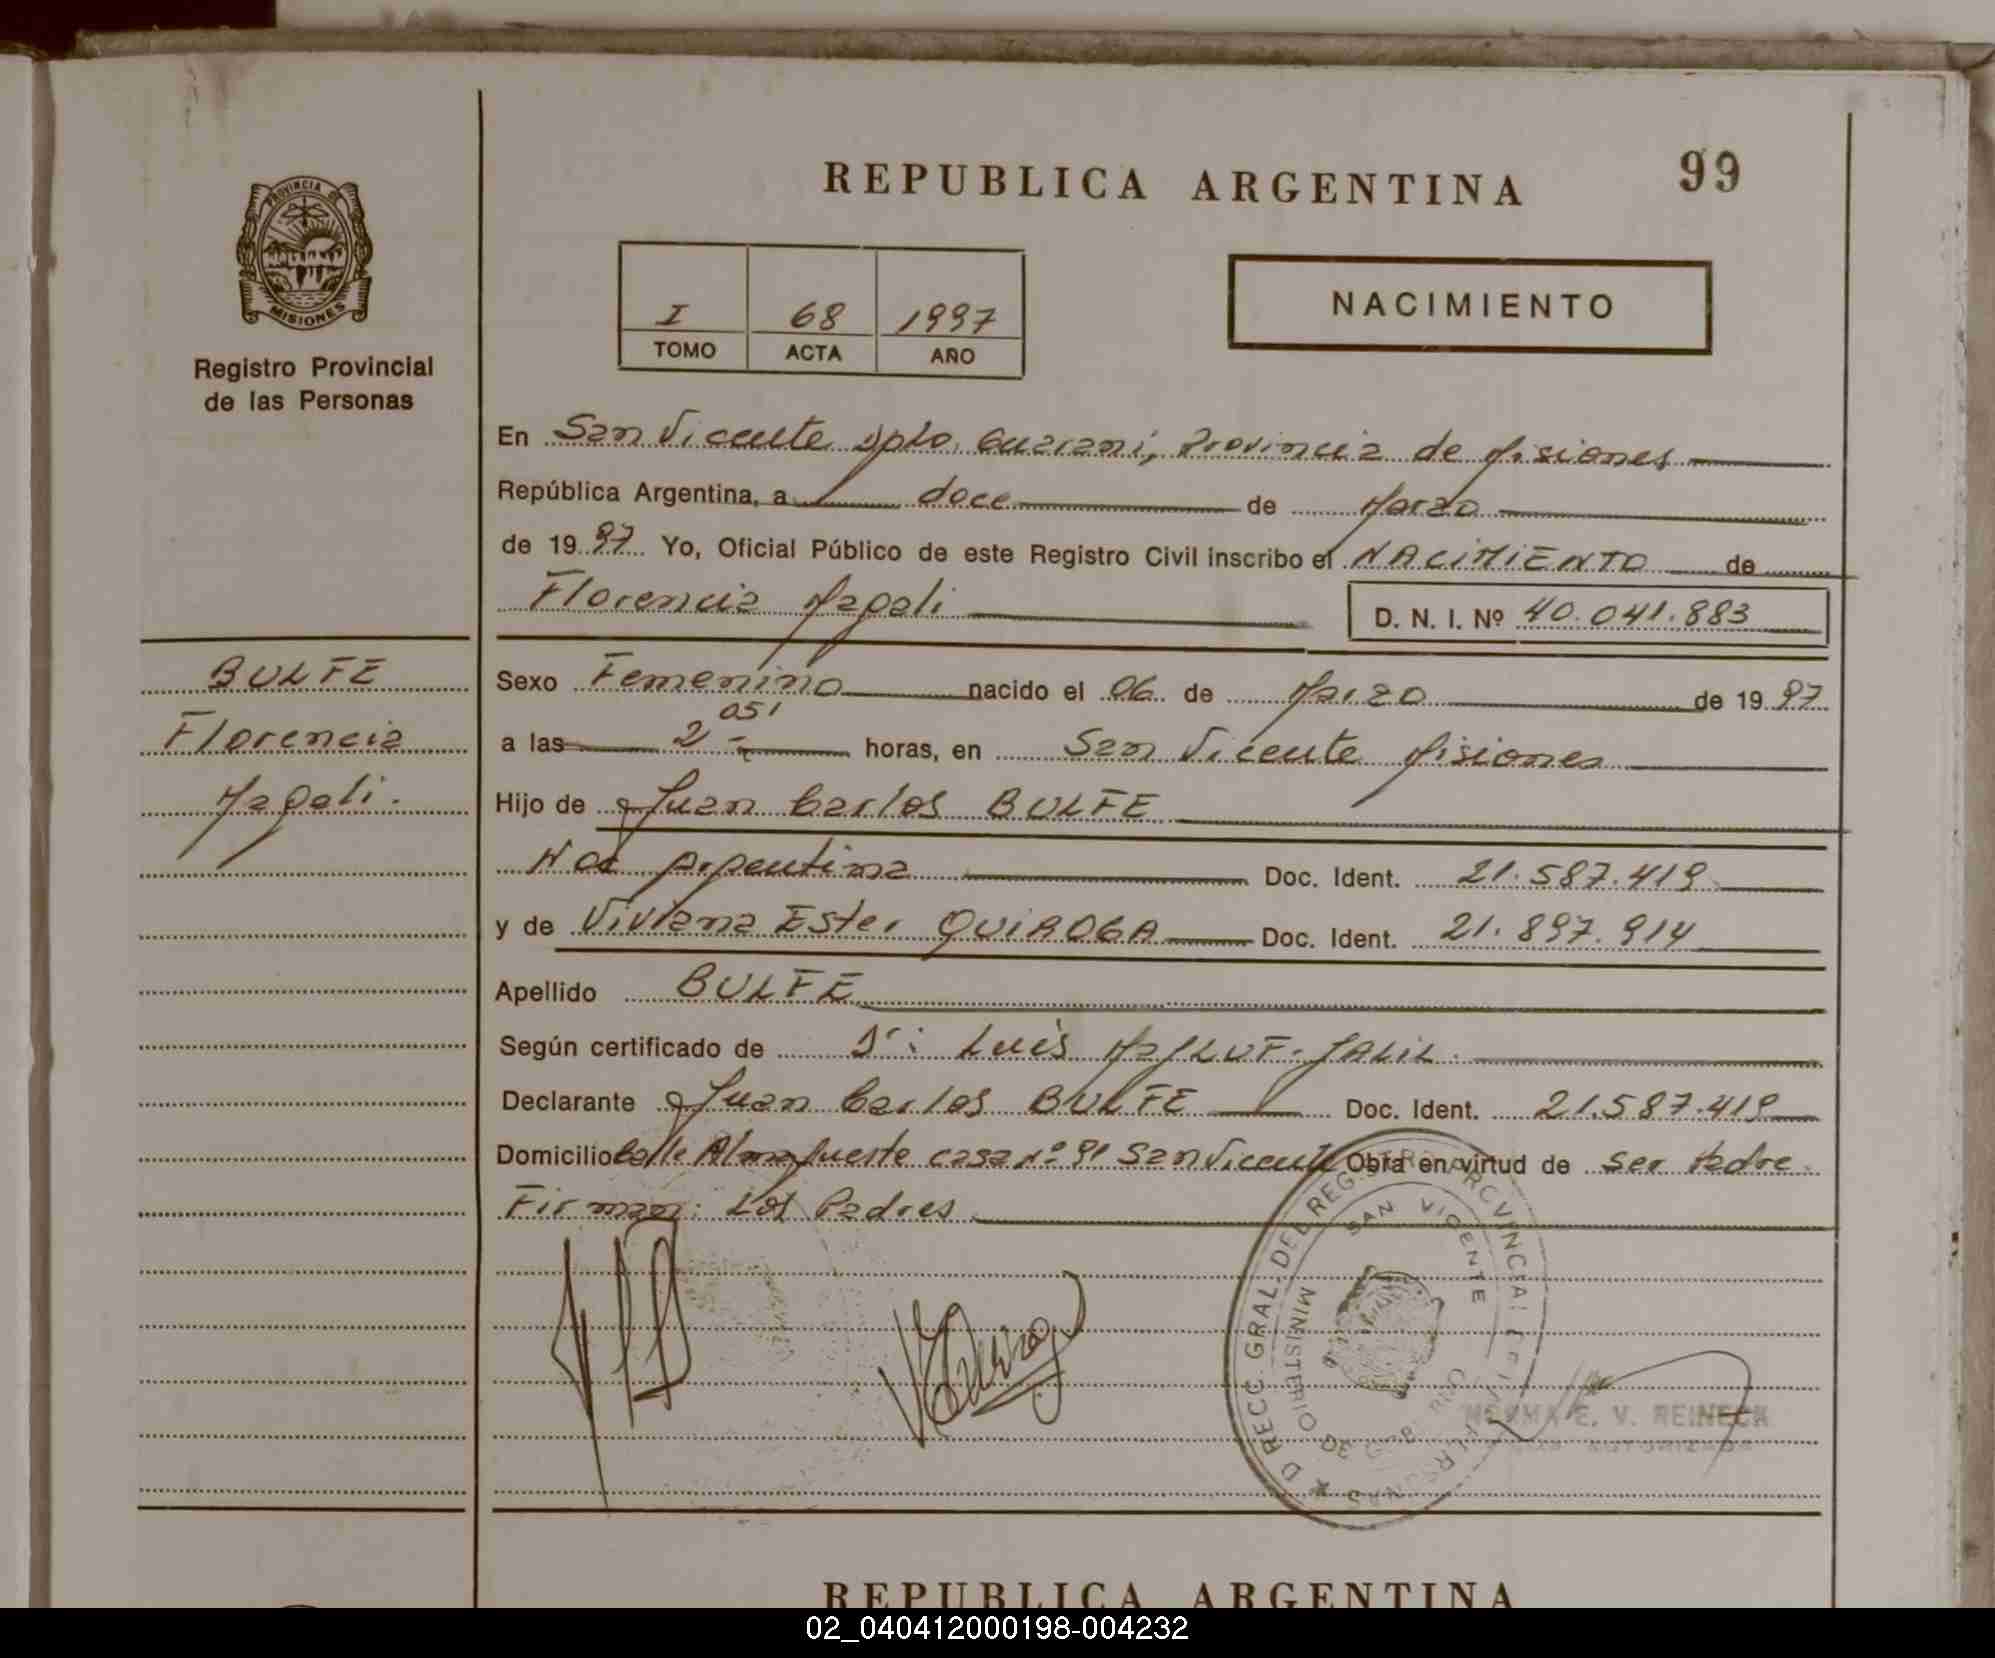 REPUBLICA ARGENTINA
99
PROVINCIA DE
MISIONES
Registro Provincial
de las Personas
I 68 1997
TOMO ACTA AÑO
NACIMIENTO
En San Vicente Dpto. Guarani, Provincia de Misiones
República Argentina, a doce de Marzo
de 19 97 Yo, Oficial Público de este Registro Civil inscribo el NACIMIENTO de
Florencia Magali
D. N. I. Nº 40.041.883
BULFE
Florencia
Magali.
Sexo Femenino nacido el 06 de Marzo de 19 97
a las 2 05' horas, en San Vicente Misiones
Hijo de Juan Carlos BULFE
Nac Argentina Doc. Ident. 21.587.419
y de Viviana Ester QUIROGA Doc. Ident. 21.897.914
Apellido BULFE
Según certificado de Dr: Luis JALIL.
Declarante Juan Carlos BULFE Doc. Ident. 21.587.419
Domicilio Calle Almafuerte casa nº 91 San Vicente Obra en virtud de ser Padre.
Firman: Los Padres
DIRECC. GRAL. DEL REGISTRO PROVINCIAL DE LAS PERSONAS
SAN VICENTE
MINISTERIO DE GOBIERNO
NORMA E. V. REINECK
REPUBLICA ARGENTINA
02_040412000198-004232